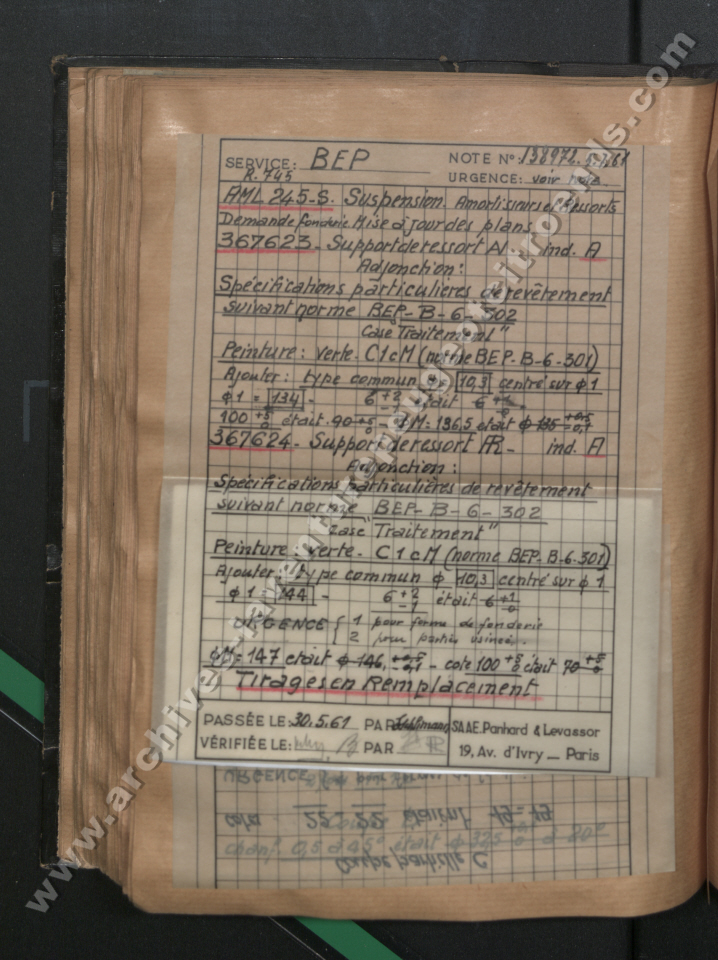 SERVICE: BEP NOTE N°: 138972
R.745 URGENCE: voir
AML 245-S. Suspension. Amortisseurs et Ressorts
Demande fonderie Mise à jour des plans
367623 - Support de ressort AV. ind. A
Adjonction:
Spécifications particulières de revêtement
suivant norme BEP-B-6-302
Case "Traitement"
Peinture: verte - C1cM (norme BEP-B-6-301)
Ajouter: type commun φ 10,3 centré sur φ1
φ1 = 134 - 6 +2 -1 était 6 +1 0
100 +5 0 était 90 +5 0 - φM = 136,5 était φ 135 +0,5 -0,1
367624 - Support de ressort AR - ind. A
Adjonction:
Spécifications particulières de revêtement
suivant norme BEP-B-6-302
Case "Traitement"
Peinture: verte - C1cM (norme BEP-B-6-301)
Ajouter: type commun φ 10,3 centré sur φ1
φ1 = 144 - 6 +2 -1 était 6 +1 0
URGENCE { 1 pour forme de fonderie
2 pour parties usinées.
φM = 147 était φ 146, +0,5 -0,1 - cote 100 +5 0 était 90 +5 0
Tirages en Remplacement
PASSÉE LE: 30.5.61 PAR S.A.AE. Panhard & Levassor
VÉRIFIÉE LE: PAR 19, Av. d'Ivry — Paris
URGENCE
cote 22 - 22 étaient 19 - 19
chanf. 0,5 à 45° était φ 325 à 20°
Coupe partielle C